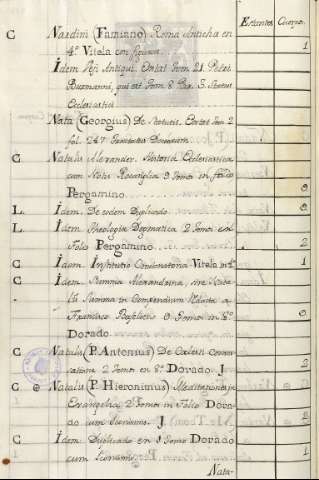 Estantes Cuerpos
C Nardini (Famiano) Roma Anticha en 1
4º Vitela con figuras
Idem Ass. Antiqui. Extat Tom 21. Petri
Burmanni, qui est Tom 8 Par. 3. Status
Ecclesiastici
Nata (Georgius) De Statutis. Extat Tom 2
fol. 247
C Natalis Alexander. Historia Ecclesiastica
cum Notis Roncaglia 9 Tomos in folio
Pergamino 9
L. Idem. De eodem Duplicado 9
L. Idem. Theologia Dogmatica 2 Tomos en
Folio Pergamino 2
C Idem. Institutio Concionatoria Vitela in 4º 1
C Idem. Summa Alexandrina, sive
Summa in Compendium Redacta a
Francisco in 8º
Dorado
C Natalis (P. Antonius) De Coelesti Conver
satione 2 Tomos en 8º Dorado J. 2
C Natalis (P. Hieronimus) Meditationes
Evangelia 2 Tomos in Folio Dora
do cum Iconismis. J.
C Idem. Duplicado en 1 Tomo Dorado
cum Iconismis 1
Nata-